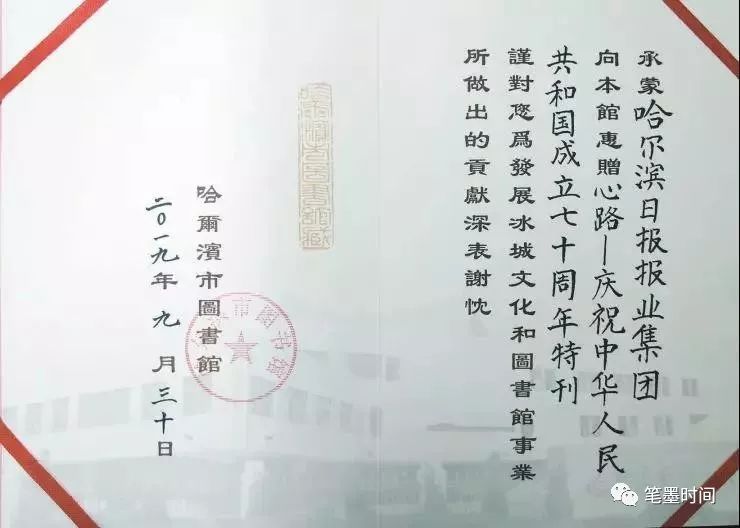 承蒙哈尔滨日报报业集团
向本館惠贈心路—庆祝中华人民
共和国成立七十周年特刊
謹對您爲發展冰城文化和圖書館事業
所做出的貢獻深表謝忱
哈爾濱市圖書館
二〇一九年九月三十日
笔墨时间